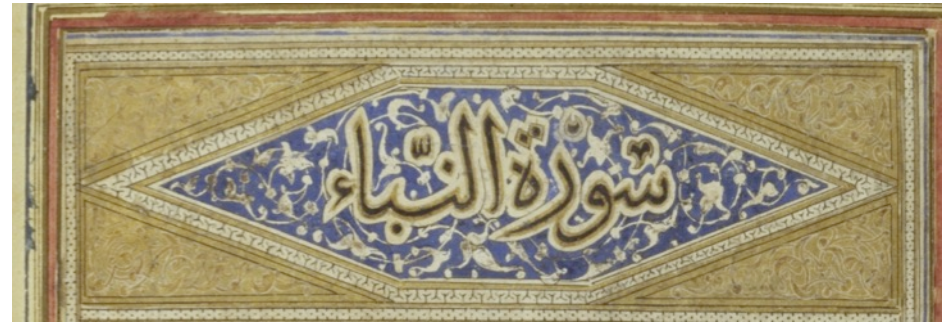 سورة النباء